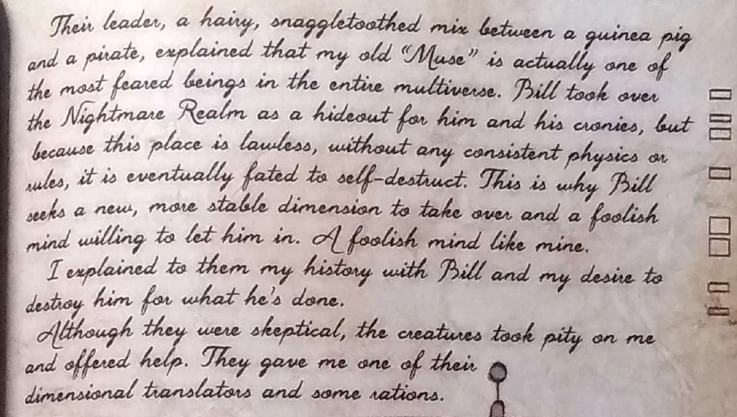 Their leader, a hairy, snaggletoothed mix between a guinea pig
and a pirate, explained that my old "Muse" is actually one of
the most feared beings in the entire multiverse. Bill took over
the Nightmare Realm as a hideout for him and his cronies, but
because this place is lawless, without any consistent physics or
rules, it is eventually fated to self-destruct. This is why Bill
seeks a new, more stable dimension to take over and a foolish
mind willing to let him in. A foolish mind like mine.
I explained to them my history with Bill and my desire to
destroy him for what he's done.
Although they were skeptical, the creatures took pity on me
and offered help. They gave me one of their
dimensional translators and some rations.